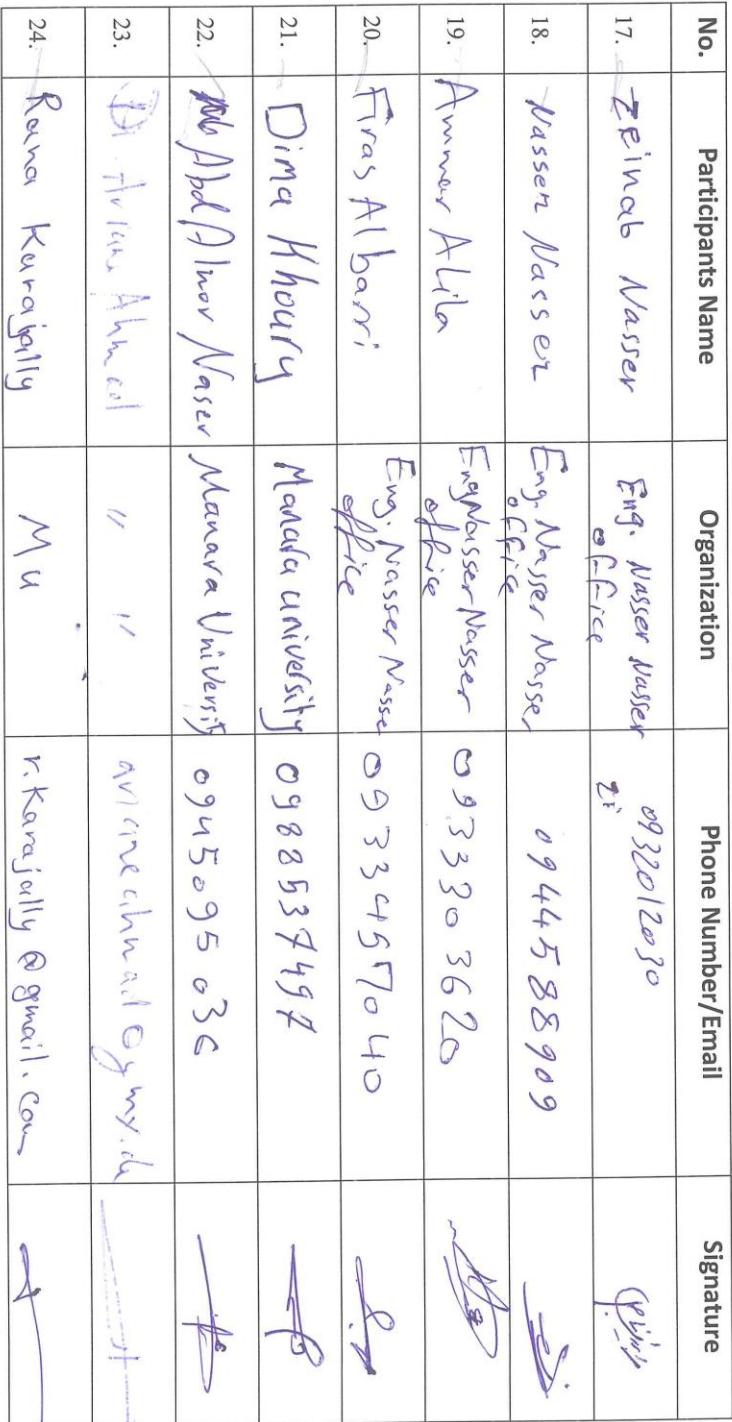 No. Participants Name Organization Phone Number/Email Signature
17. Zeinab Nasser Eng. Nasser Nasser office 0932012030
18. Nasser Nasser Eng. Nasser Nasser office 0944588909
19. Ammar Alila Eng Nasser Nasser office 0933303620
20. Firas Albarri Eng. Nasser Nasse office 0933457040
21. Dima Khoury Manara university 0988537497
22. Abd Alnor Naser Manara University
23. Ahmad " "
24. Rana Karajally Mu r.karajally@gmail.com